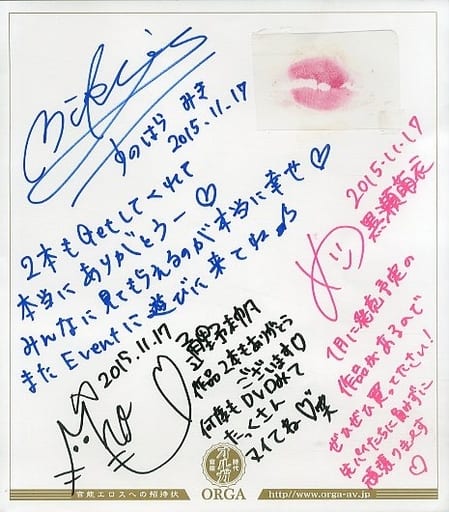 すのはら みき
2015.11.17
2本もGetしてくれて
本当にありがとうー♡
みんなに見てもらえるのが本当に幸せ♡
また Eventに遊びに来てね
2015.11.17
黒瀬萌衣
1月に発売予定の
作品があるので
ぜひぜひ買ってください!
先パイたちに負けずに
頑張りまーす♡
2015.11.17
作品2本もありがとう
ございます♡
何度もDVDみて
たっくさん
ヌイてね♡笑
Miho
官能エロスへの招待状
ORGA
http://www.orga-av.jp